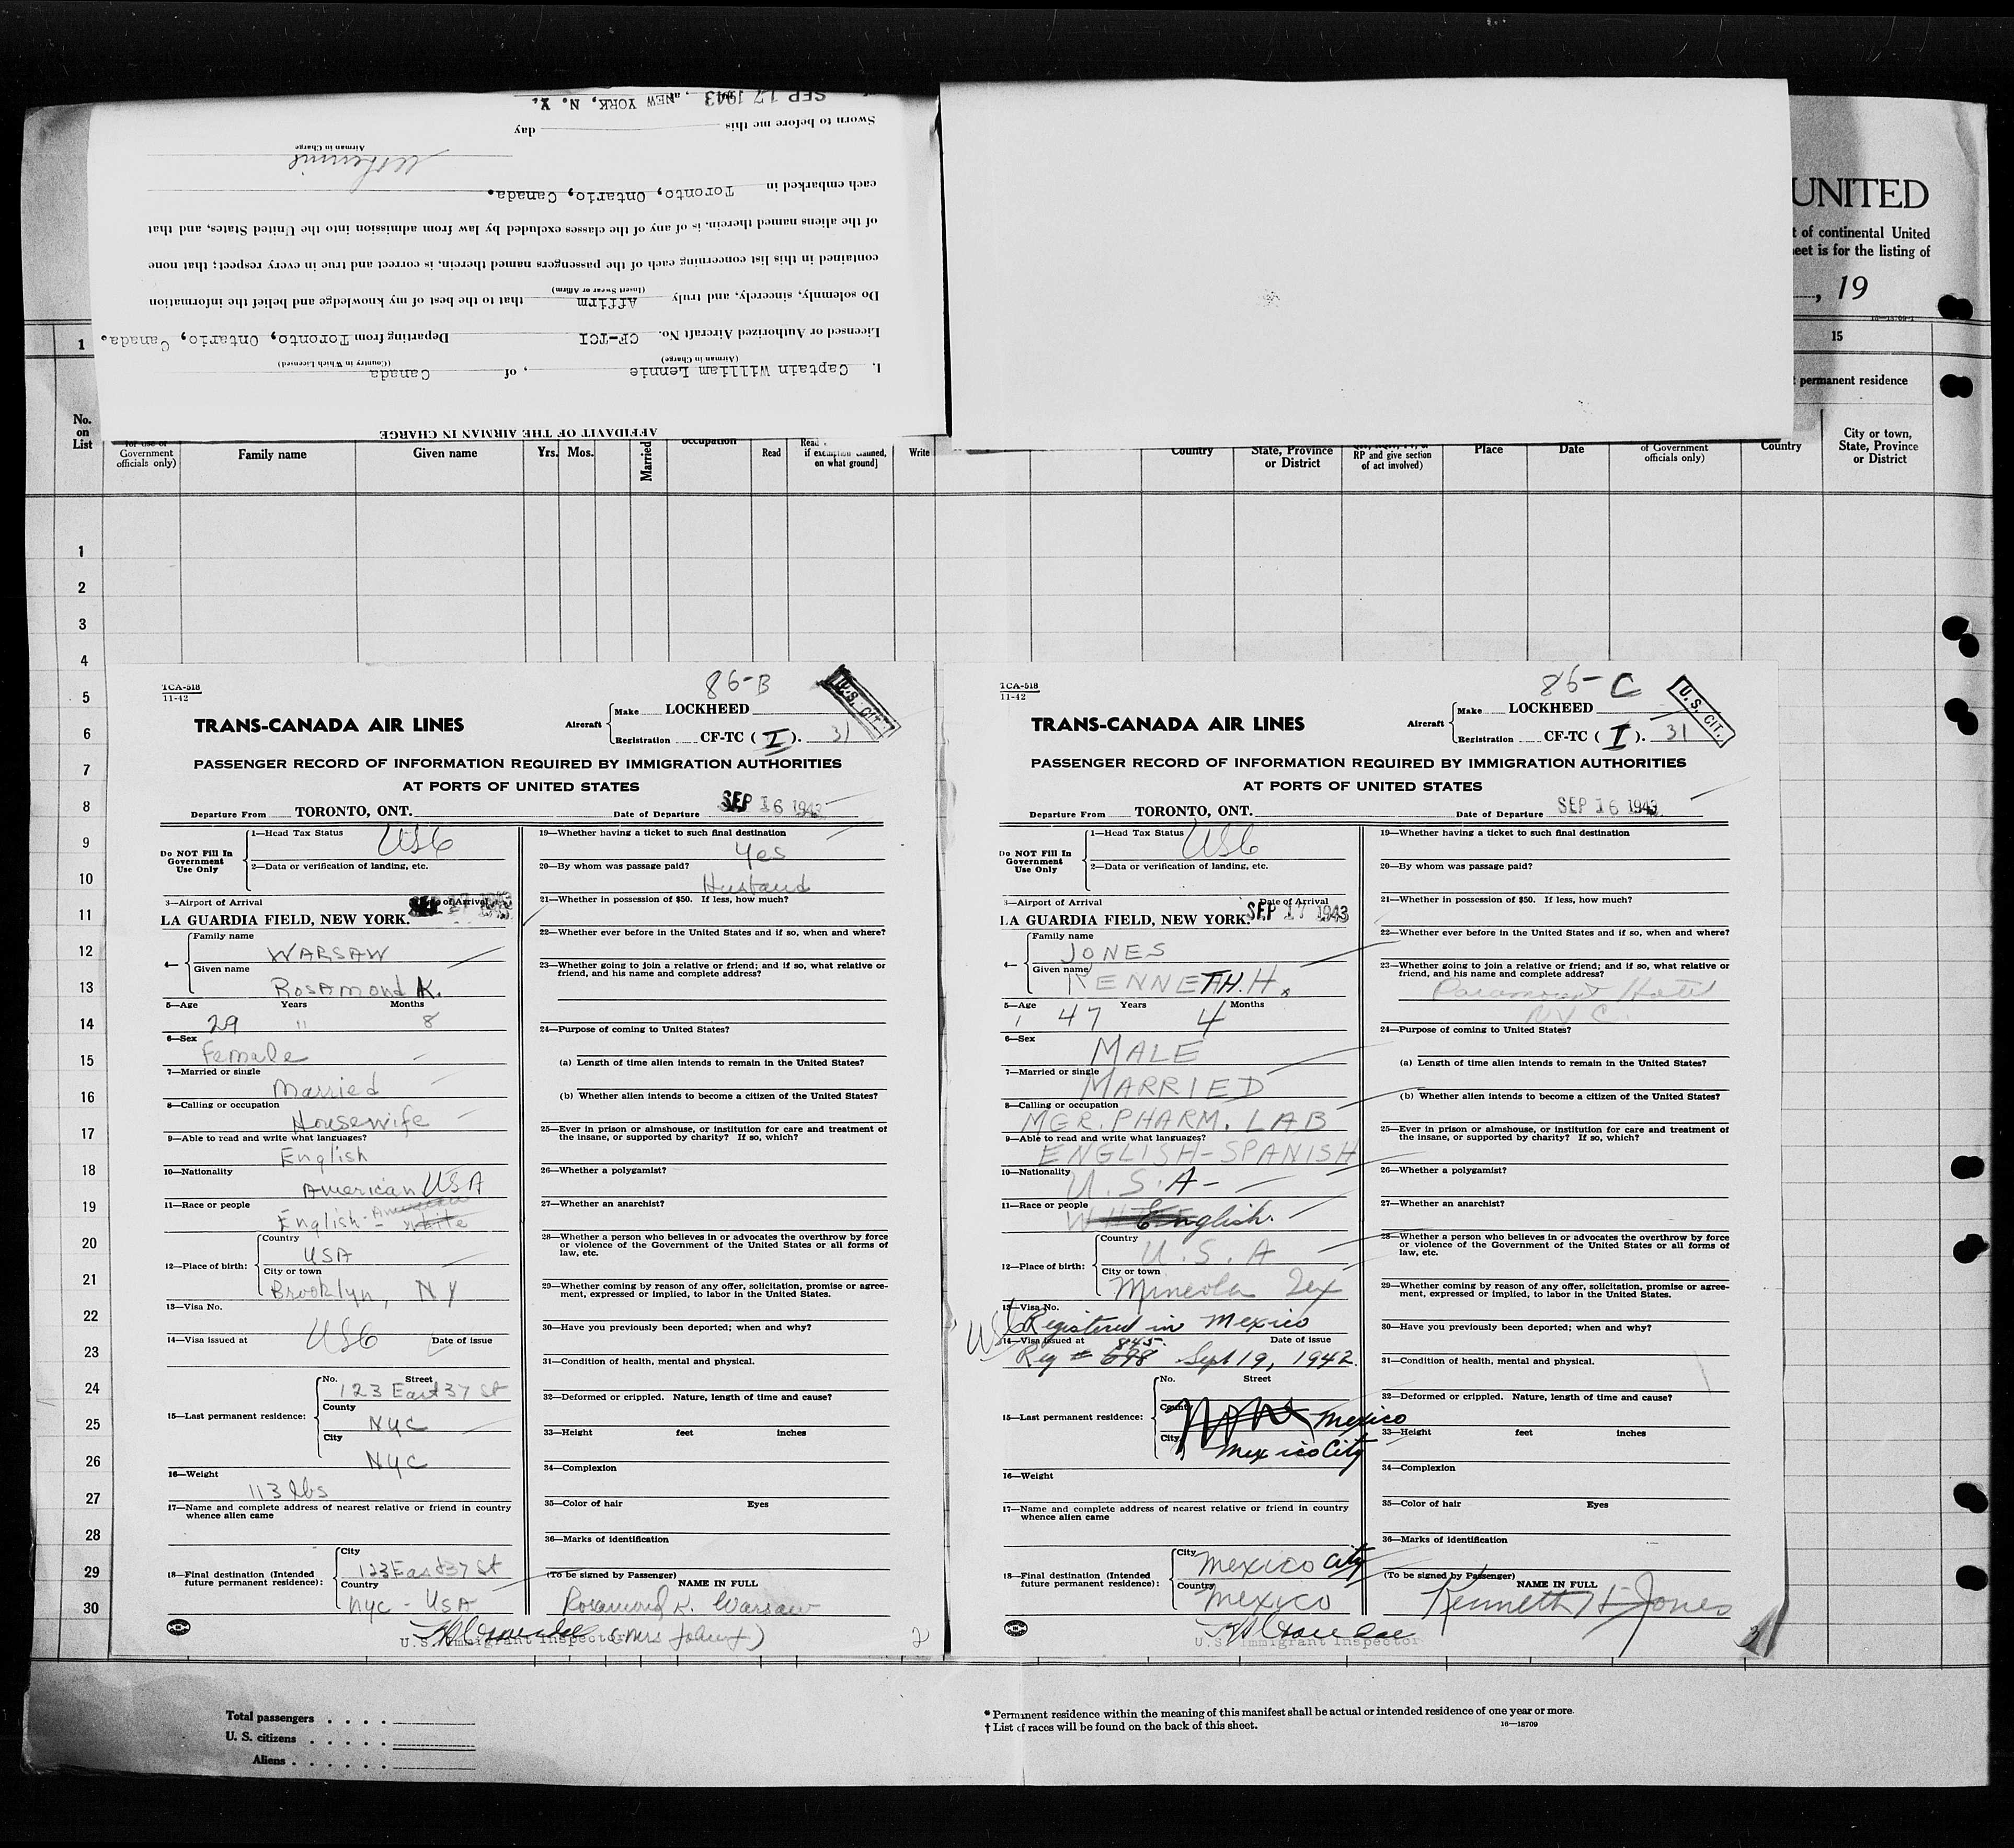 AFFIDAVIT OF THE AIRMAN IN CHARGE
I, Captain William Lennie, of Canada
(Airman in Charge) (Country in Which Licensed)
Licensed or Authorized Aircraft No. CF-TCI Departing from Toronto, Ontario, Canada.
Do solemnly, sincerely, and truly Affirm that to the best of my knowledge and belief the information
(Insert Swear or Affirm)
contained in this list concerning each of the passengers named therein, is correct and true in every respect; that none
of the aliens named therein, is of any of the classes excluded by law from admission into the United States, and that
each embarked in Toronto, Ontario, Canada.
Airman in Charge
Sworn to before me this day
SEP 17 1943, at NEW YORK, N. Y.
UNITED
t of continental United
eet is for the listing of
, 19
1
15
permanent residence
No. on List
Government officials only)
Family name
Given name
Yrs. Mos.
Married
occupation
Read
if exemption claimed, on what ground]
Write
Country
State, Province or District
RP and give section of act involved)
Place
Date
of Government officials only)
Country
City or town, State, Province or District
1
2
3
4
5
6
7
8
9
10
11
12
13
14
15
16
17
18
19
20
21
22
23
24
25
26
27
28
29
30
TCA-518
11-42
86-B
U.S. CIT.
TRANS-CANADA AIR LINES
Aircraft
Make LOCKHEED
Registration CF-TC ( I ). 31
PASSENGER RECORD OF INFORMATION REQUIRED BY IMMIGRATION AUTHORITIES
AT PORTS OF UNITED STATES
Departure From TORONTO, ONT. Date of Departure SEP 16 1943
Do NOT Fill In Government Use Only
1—Head Tax Status USC
2—Data or verification of landing, etc.
3—Airport of Arrival Date of Arrival
LA GUARDIA FIELD, NEW YORK. SEP 17 1943
4— Family name
WARSAW
Given name
Rosamond K.
5—Age Years Months
29 " 8
6—Sex
Female
7—Married or single
Married
8—Calling or occupation
Housewife
9—Able to read and write what languages?
English
10—Nationality
American USA
11—Race or people
English - American - White
12—Place of birth:
Country
USA
City or town
Brooklyn, NY
13—Visa No.
USC
14—Visa issued at Date of issue
15—Last permanent residence:
No. Street
123 East 37 St
County
NYC
City
NYC
16—Weight
113 lbs
17—Name and complete address of nearest relative or friend in country
whence alien came
18—Final destination (Intended
future permanent residence):
City
123 East 37 St
Country
NYC - USA
19—Whether having a ticket to such final destination
Yes
20—By whom was passage paid?
Husband
21—Whether in possession of $50. If less, how much?
22—Whether ever before in the United States and if so, when and where?
23—Whether going to join a relative or friend; and if so, what relative or
friend, and his name and complete address?
24—Purpose of coming to United States?
(a) Length of time alien intends to remain in the United States?
(b) Whether alien intends to become a citizen of the United States?
25—Ever in prison or almshouse, or institution for care and treatment of
the insane, or supported by charity? If so, which?
26—Whether a polygamist?
27—Whether an anarchist?
28—Whether a person who believes in or advocates the overthrow by force
or violence of the Government of the United States or all forms of
law, etc.
29—Whether coming by reason of any offer, solicitation, promise or agree-
ment, expressed or implied, to labor in the United States.
30—Have you previously been deported; when and why?
31—Condition of health, mental and physical.
32—Deformed or crippled. Nature, length of time and cause?
33—Height feet inches
34—Complexion
35—Color of hair Eyes
36—Marks of identification
(To be signed by Passenger) NAME IN FULL
Rosamond K. Warsaw
(Mrs John J)
U.S. Immigrant Inspector
2
TCA-518
11-42
86-C
U.S. CIT.
TRANS-CANADA AIR LINES
Aircraft
Make LOCKHEED
Registration CF-TC ( I ). 31
PASSENGER RECORD OF INFORMATION REQUIRED BY IMMIGRATION AUTHORITIES
AT PORTS OF UNITED STATES
Departure From TORONTO, ONT. Date of Departure SEP 16 1943
Do NOT Fill In Government Use Only
1—Head Tax Status USC
2—Data or verification of landing, etc.
3—Airport of Arrival Date of Arrival
LA GUARDIA FIELD, NEW YORK. SEP 17 1943
4— Family name
JONES
Given name
KENNETH H.
5—Age Years Months
47 4
6—Sex
MALE
7—Married or single
MARRIED
8—Calling or occupation
MGR. PHARM. LAB
9—Able to read and write what languages?
ENGLISH-SPANISH
10—Nationality
U.S.A-
11—Race or people
English.
12—Place of birth:
Country
U.S.A
City or town
Mineola Tex
13—Visa No.
USC Registered in Mexico
14—Visa issued at Date of issue
Reg # 698 845 Sept 19, 1942.
15—Last permanent residence:
No. Street
County
Mexico
City
Mexico City
16—Weight
17—Name and complete address of nearest relative or friend in country
whence alien came
18—Final destination (Intended
future permanent residence):
City
Mexico City
Country
Mexico
19—Whether having a ticket to such final destination
20—By whom was passage paid?
21—Whether in possession of $50. If less, how much?
22—Whether ever before in the United States and if so, when and where?
23—Whether going to join a relative or friend; and if so, what relative or
friend, and his name and complete address?
Paramount Hotel
N Y C.
24—Purpose of coming to United States?
(a) Length of time alien intends to remain in the United States?
(b) Whether alien intends to become a citizen of the United States?
25—Ever in prison or almshouse, or institution for care and treatment of
the insane, or supported by charity? If so, which?
26—Whether a polygamist?
27—Whether an anarchist?
28—Whether a person who believes in or advocates the overthrow by force
or violence of the Government of the United States or all forms of
law, etc.
29—Whether coming by reason of any offer, solicitation, promise or agree-
ment, expressed or implied, to labor in the United States.
30—Have you previously been deported; when and why?
31—Condition of health, mental and physical.
32—Deformed or crippled. Nature, length of time and cause?
33—Height feet inches
34—Complexion
35—Color of hair Eyes
36—Marks of identification
(To be signed by Passenger) NAME IN FULL
Kenneth H Jones
U.S. Immigrant Inspector
3
Total passengers . . . .
U. S. citizens . . . . .
Aliens . . . . . .
* Permanent residence within the meaning of this manifest shall be actual or intended residence of one year or more.
† List of races will be found on the back of this sheet. 16—18709